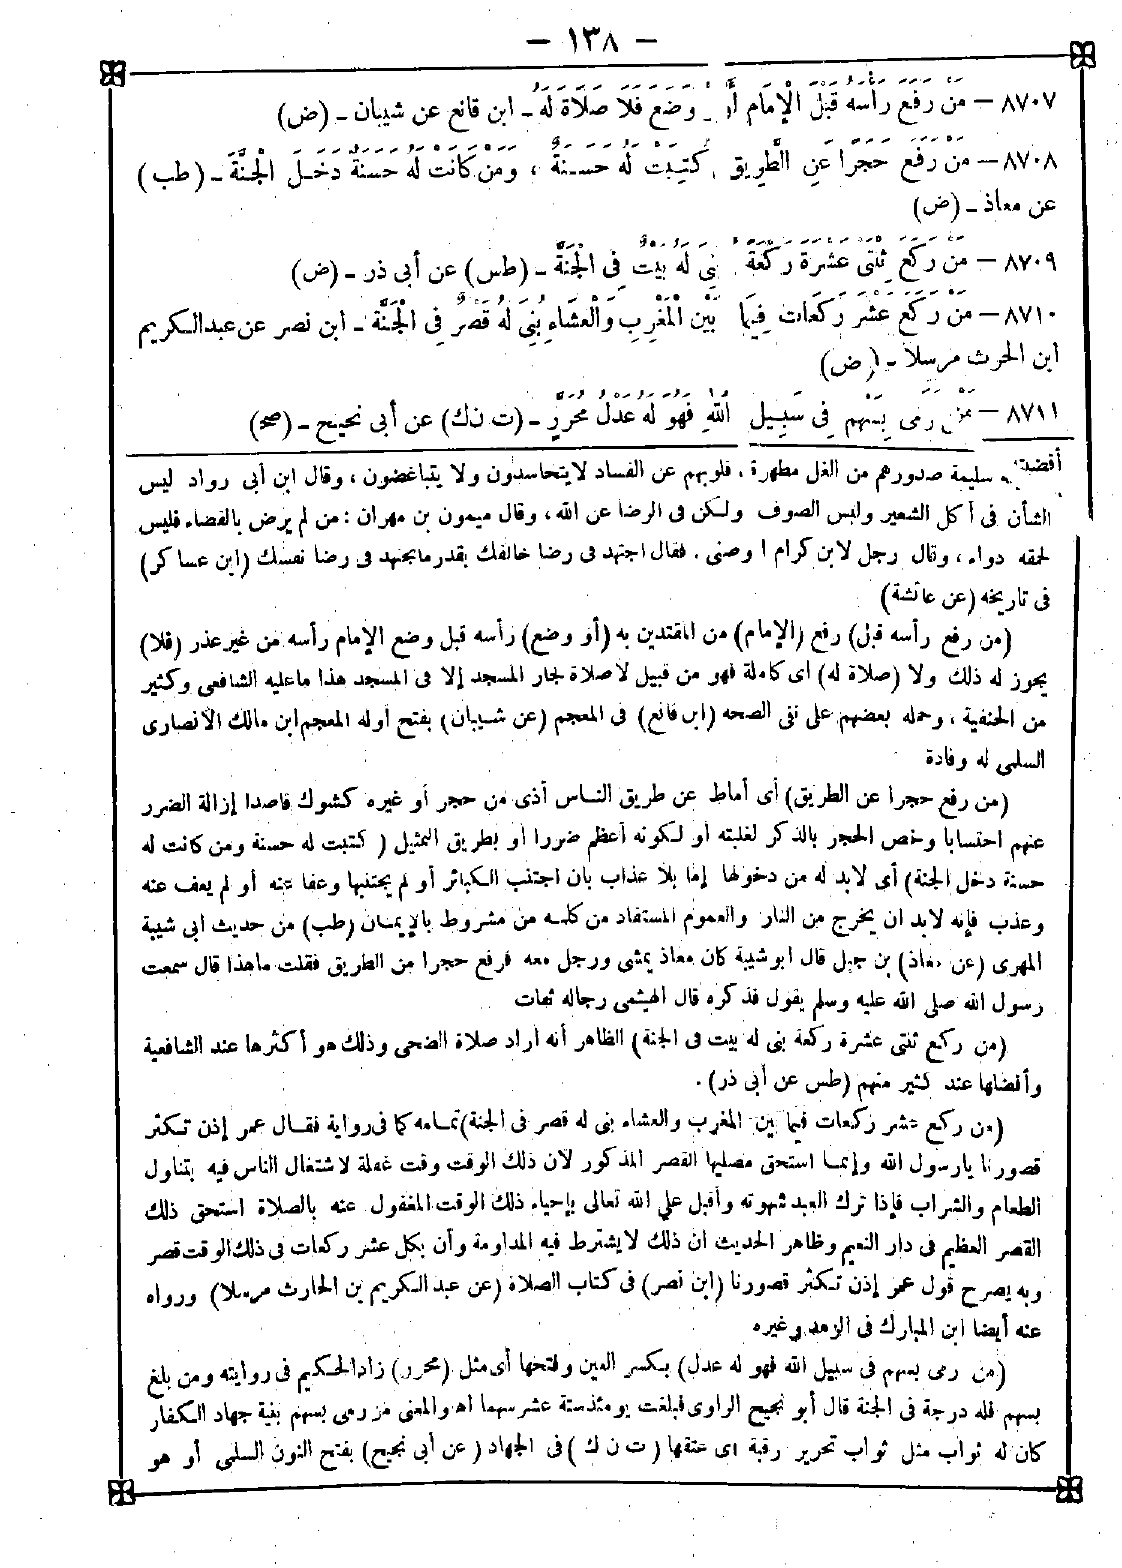 — ١٣٨ —
٨٧٠٧ — مَنْ رَفَعَ رَأْسَهُ قَبْلَ الْإِمَامِ أَوْ وَضَعَ فَلَا صَلَاةَ لَهُ ـ ابن قانع عن شيبان ـ (ض)
٨٧٠٨ — مَنْ رَفَعَ حَجَرًا عَنِ الطَّرِيقِ كُتِبَتْ لَهُ حَسَنَةٌ ، وَمَنْ كَانَتْ لَهُ حَسَنَةٌ دَخَلَ الْجَنَّةَ ـ (طب)
عن معاذ ـ (ض)
٨٧٠٩ — مَنْ رَكَعَ ثِنْتَىْ عَشْرَةَ رَكْعَةً بُنِىَ لَهُ بَيْتٌ فِى الْجَنَّةِ ـ (طس) عن أبى ذر ـ (ض)
٨٧١٠ — مَنْ رَكَعَ عَشْرَ رَكَعَاتٍ فِيمَا بَيْنَ الْمَغْرِبِ وَالْعِشَاءِ بُنِىَ لَهُ قَصْرٌ فِى الْجَنَّةِ ـ ابن نصر عن عبد الكريم
ابن الحرث مرسلا ـ (ض)
٨٧١١ — مَنْ رَمَى بِسَهْمٍ فِى سَبِيلِ اللهِ فَهُوَ لَهُ عَدْلُ مُحَرَّرٍ ـ (ت ن ك) عن أبى نجيح ـ (صح)
أفضيته سليمة صدورهم من الغل مطهرة ، قلوبهم عن الفساد لا يتحاسدون ولا يتباغضون ، وقال ابن أبى رواد ليس
الشأن فى أكل الشعير ولبس الصوف ولكن فى الرضا عن الله ، وقال ميمون بن مهران : من لم يرض بالقضاء فليس
لحمقه دواء ، وقال رجل لابن كرام أوصنى ، فقال اجتهد فى رضا خالقك بقدر ما تجتهد فى رضا نفسك (ابن عساكر)
فى تاريخه (عن عائشة)
(من رفع رأسه قبل) رفع (الإمام) من المقتدين به (أو وضع) رأسه قبل وضع الإمام رأسه من غير عذر (فلا)
يجوز له ذلك ولا (صلاة له) أى كاملة فهو من قبيل لا صلاة لجار المسجد إلا فى المسجد هذا ما عليه الشافعى وكثير
من الحنفية ، وحمله بعضهم على نفى الصحه (ابن قانع) فى المعجم (عن شيبان) بفتح أوله المعجم ابن مالك الأنصارى
السلمى له وفادة
(من رفع حجرا عن الطريق) أى أماط عن طريق الناس أذى من حجر أو غيره كشوك قاصدا إزالة الضرر
عنهم احتسابا وخص الحجر بالذكر لغلبته أو لكونه أعظم ضررا أو بطريق التمثيل (كتبت له حسنة ومن كانت له
حسنة دخل الجنة) أى لابد له من دخولها إما بلا عذاب بأن اجتنب الكبائر أو لم يجتنبها وعفا عنه أو لم يعف عنه
وعذب فإنه لابد أن يخرج من النار والعموم المستفاد من كلمة من مشروط بالإيمان (طب) من حديث أبى شيبة
المهرى (عن معاذ) بن جبل قال أبو شيبة كان معاذ يمشى ورجل معه فرفع حجرا من الطريق فقلت ماهذا قال سمعت
رسول الله صلى الله عليه وسلم يقول فذكره قال الهيثمى رجاله ثقات
(من ركع ثنتى عشرة ركعة بنى له بيت فى الجنة) الظاهر أنه أراد صلاة الضحى وذلك هو أكثرها عند الشافعية
وأفضلها عند كثير منهم (طس عن أبى ذر) .
(من ركع عشر ركعات فيما بين المغرب والعشاء بنى له قصر فى الجنة) تمامه كما فى رواية فقال عمر إذن تكثر
قصورنا يارسول الله وإنما استحق مصليها القصر المذكور لأن ذلك الوقت وقت غفلة لاشتغال الناس فيه بتناول
الطعام والشراب فإذا ترك العبد شهوته وأقبل على الله تعالى بإحياء ذلك الوقت المغفول عنه بالصلاة استحق ذلك
القصر العظيم فى دار النعيم وظاهر الحديث أن ذلك لايشترط فيه المداومة وأن بكل عشر ركعات فى ذلك الوقت قصر
وبه يصرح قول عمر إذن تكثر قصورنا (ابن نصر) فى كتاب الصلاة (عن عبد الكريم بن الحارث مرسلا) ورواه
عنه أيضا ابن المبارك فى الزهد وغيره
(من رمى بسهم فى سبيل الله فهو له عدل) بكسر العين وفتحها أى مثل (محرر) زاد الحكيم فى روايته ومن بلغ
بسهم فله درجة فى الجنة قال أبو نجيح الراوى فبلغت يومئذ ستة عشر سهما اه والمعنى من رمى بسهم بنية جهاد الكفار
كان له ثواب مثل ثواب تحرير رقبة أى عتقها (ت ن ك) فى الجهاد (عن أبى نجيح) بفتح النون السلمى أو هو